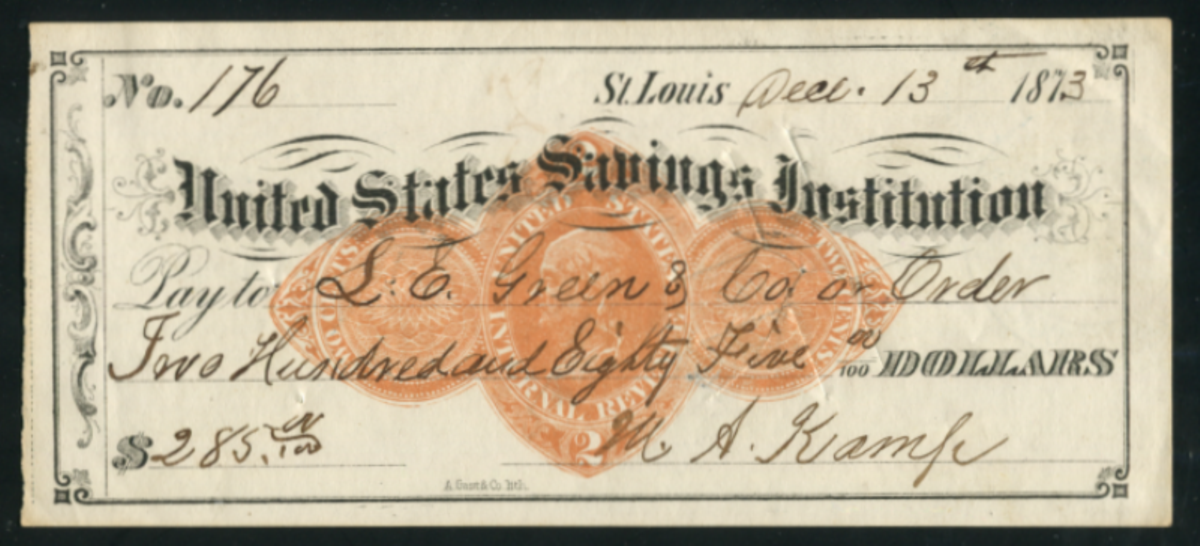 No. 176 St. Louis Decr. 13th 1873
United States Savings Institution
Pay to L. E. Green & Co. or Order
Two Hundred and Eighty Five 00/100 DOLLARS
$ 285. 00/100 M. A. Kamp
UNITED STATES INTERNAL REVENUE
TWO CENTS
TWO CENTS
2
A. Gast & Co. lith.